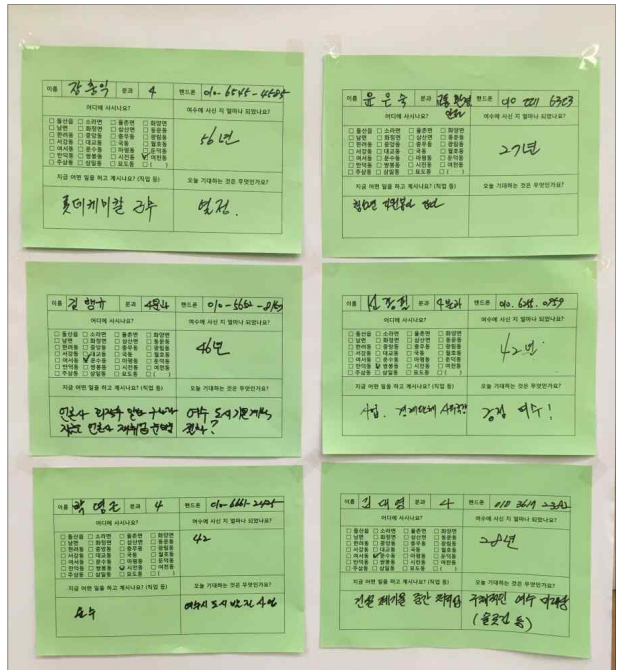 이름 장충익 분과 4 핸드폰 010-6545-4585
어디에 사시나요? 여수에 사신 지 얼마나 되었나요?
□ 돌산읍 □ 소라면 □ 율촌면 □ 화양면
□ 남면 □ 화정면 □ 삼산면 □ 동문동
□ 한려동 □ 중앙동 □ 충무동 □ 광림동
□ 서강동 □ 대교동 □ 국동 □ 월호동
□ 여서동 □ 문수동 □ 미평동 □ 둔덕동
□ 만덕동 □ 쌍봉동 □ 시전동 □ 여천동
□ 주삼동 □ 삼일동 □ 묘도동 □ ( )
56년
지금 어떤 일을 하고 계시나요? (직업 등) 오늘 기대하는 것은 무엇인가요?
롯데케미칼 근무 열정.
이름 윤은숙 분과 교통환경 핸드폰 010
어디에 사시나요? 여수에 사신 지 얼마나 되었나요?
□ 돌산읍 □ 소라면 □ 율촌면 □ 화양면
□ 남면 □ 화정면 □ 삼산면 □ 동문동
□ 한려동 □ 중앙동 □ 충무동 □ 광림동
□ 서강동 □ 대교동 □ 국동 □ 월호동
□ 여서동 □ 문수동 □ 미평동 □ 둔덕동
□ 만덕동 □ 쌍봉동 □ 시전동 □ 여천동
□ 주삼동 □ 삼일동 □ 묘도동 □ ( )
27년
지금 어떤 일을 하고 계시나요? (직업 등) 오늘 기대하는 것은 무엇인가요?
이름 김행규 분과 4분과 핸드폰 010-5652-
어디에 사시나요? 여수에 사신 지 얼마나 되었나요?
□ 돌산읍 □ 소라면 □ 율촌면 □ 화양면
□ 남면 □ 화정면 □ 삼산면 □ 동문동
□ 한려동 □ 중앙동 □ 충무동 □ 광림동
□ 서강동 □ 대교동 □ 국동 □ 월호동
□ 여서동 □ 문수동 □ 미평동 □ 둔덕동
□ 만덕동 □ 쌍봉동 □ 시전동 □ 여천동
□ 주삼동 □ 삼일동 □ 묘도동 □ ( )
46년
지금 어떤 일을 하고 계시나요? (직업 등) 오늘 기대하는 것은 무엇인가요?
언론사 여수 도시기본계획
이름 분과 4분과 핸드폰 010.
어디에 사시나요? 여수에 사신 지 얼마나 되었나요?
□ 돌산읍 □ 소라면 □ 율촌면 □ 화양면
□ 남면 □ 화정면 □ 삼산면 □ 동문동
□ 한려동 □ 중앙동 □ 충무동 □ 광림동
□ 서강동 □ 대교동 □ 국동 □ 월호동
□ 여서동 □ 문수동 □ 미평동 □ 둔덕동
□ 만덕동 □ 쌍봉동 □ 시전동 □ 여천동
□ 주삼동 □ 삼일동 □ 묘도동 □ ( )
42년
지금 어떤 일을 하고 계시나요? (직업 등) 오늘 기대하는 것은 무엇인가요?
사업. 여수!
이름 분과 4 핸드폰 010-6661-2425
어디에 사시나요? 여수에 사신 지 얼마나 되었나요?
□ 돌산읍 □ 소라면 □ 율촌면 □ 화양면
□ 남면 □ 화정면 □ 삼산면 □ 동문동
□ 한려동 □ 중앙동 □ 충무동 □ 광림동
□ 서강동 □ 대교동 □ 국동 □ 월호동
□ 여서동 □ 문수동 □ 미평동 □ 둔덕동
□ 만덕동 □ 쌍봉동 □ 시전동 □ 여천동
□ 주삼동 □ 삼일동 □ 묘도동 □ ( )
42
지금 어떤 일을 하고 계시나요? (직업 등) 오늘 기대하는 것은 무엇인가요?
여수시 도시
이름 김대영 분과 4 핸드폰 010 3619
어디에 사시나요? 여수에 사신 지 얼마나 되었나요?
□ 돌산읍 □ 소라면 □ 율촌면 □ 화양면
□ 남면 □ 화정면 □ 삼산면 □ 동문동
□ 한려동 □ 중앙동 □ 충무동 □ 광림동
□ 서강동 □ 대교동 □ 국동 □ 월호동
□ 여서동 □ 문수동 □ 미평동 □ 둔덕동
□ 만덕동 □ 쌍봉동 □ 시전동 □ 여천동
□ 주삼동 □ 삼일동 □ 묘도동 □ ( )
28년
지금 어떤 일을 하고 계시나요? (직업 등) 오늘 기대하는 것은 무엇인가요?
건설폐기물 중간 처리업 구체적인 여수 미래상
(솔루션 등)